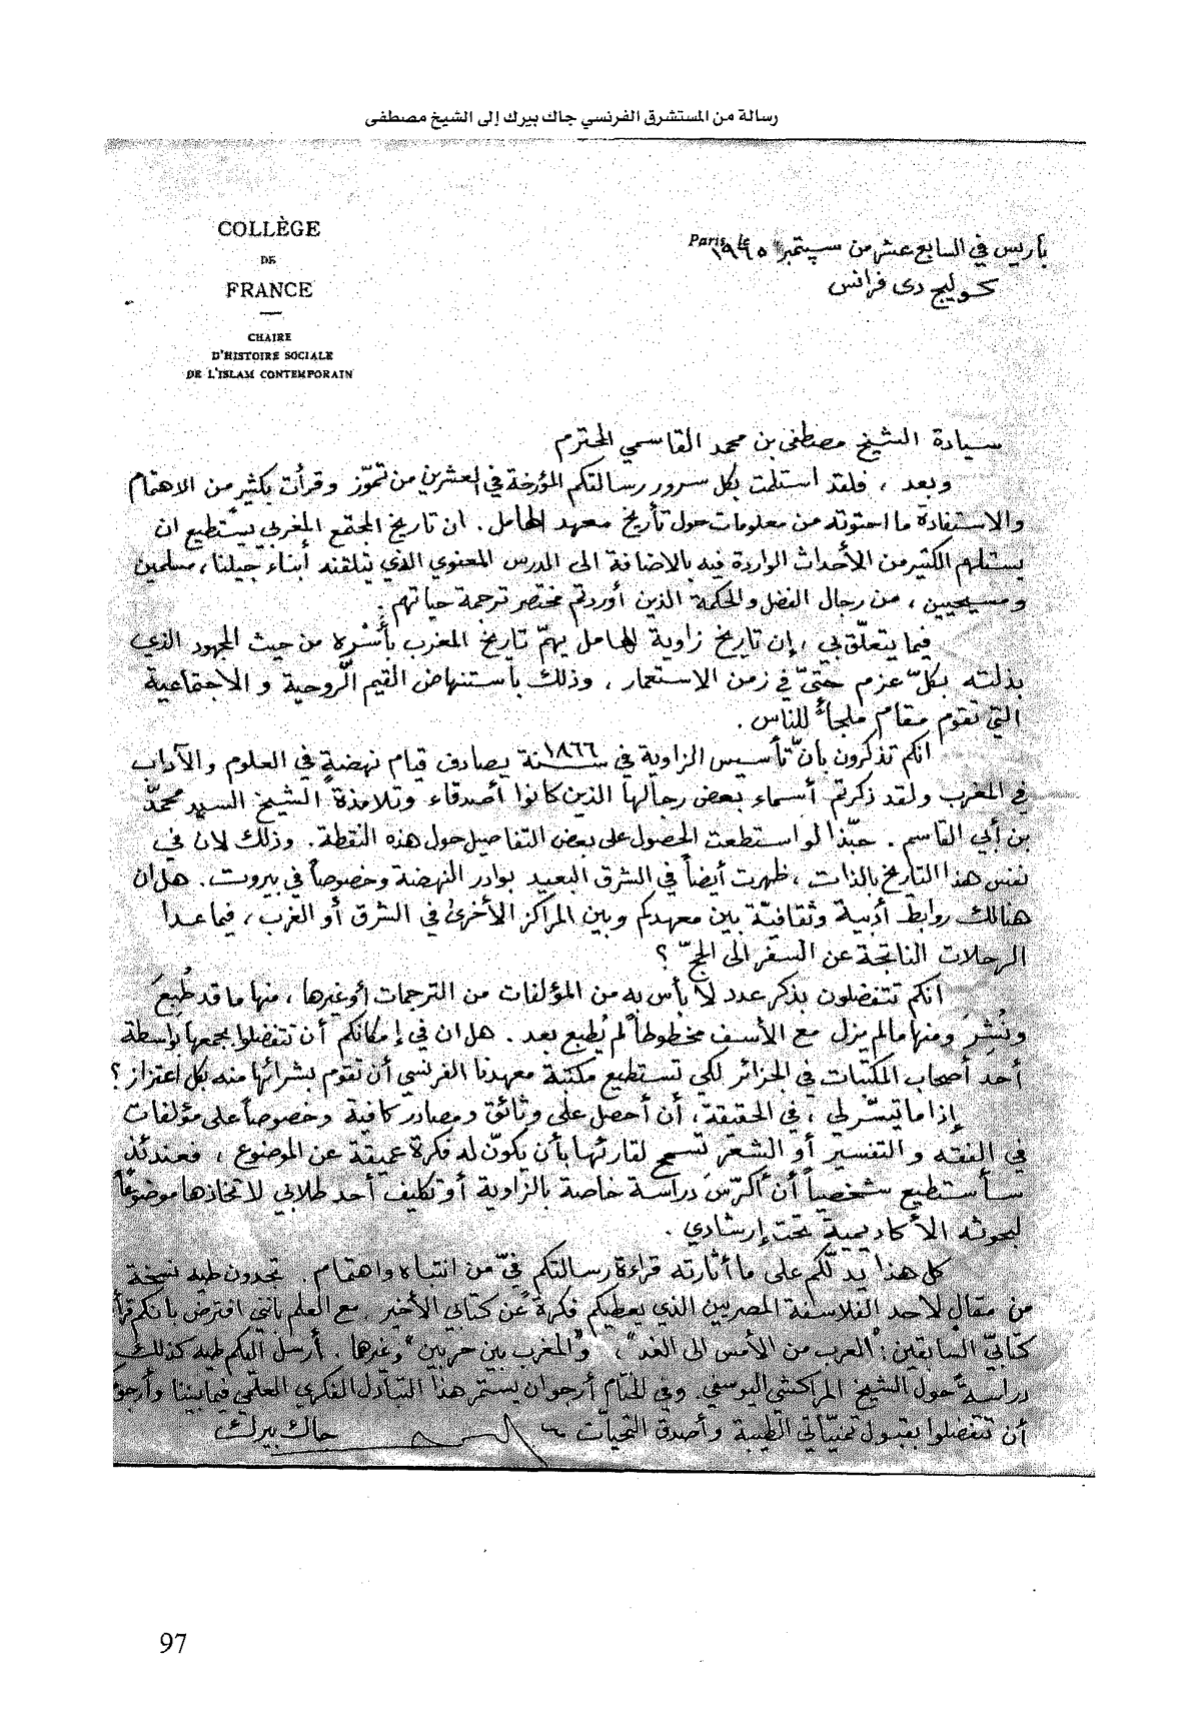 رسالة من المستشرق الفرنسي جاك بيرك إلى الشيخ مصطفى
COLLÈGE
DE
FRANCE
CHAIRE
D'HISTOIRE SOCIALE
DE L'ISLAM CONTEMPORAIN
Paris, le
باريس في السابع عشر من سبتمبر ١٩٦٥
كوليج دى فرانس
سيادة الشيخ مصطفى بن محمد القاسمي المحترم
وبعد ، فلقد استلمت بكل سرور رسالتكم المؤرخة في العشرين من تموّز وقرأت بكثير من الاهتمام
والاستفادة ما احتوته من معلومات حول تأريخ معهد الهامل . ان تاريخ المجتمع المغربي يستطيع ان
يستلهم الكثير من الأحداث الواردة فيه بالاضافة الى الدرس المعنوي الذي يتلقنه أبناء جيلنا ، مسلمين
ومسيحيين ، من رجال الفضل والحكمة الذين أوردتم مختصر ترجمة حياتهم .
فيما يتعلّق بي ، إن تاريخ زاوية الهامل يهمّ تاريخ المغرب بأسْره من حيث المجهود الذي
بذلته بكلّ عزم حتىّ في زمن الاستعمار ، وذلك باستنهاض القيم الرّوحية و الاجتماعية
التي تقوم مقام ملجأ للناس .
انكم تذكرون بانّ تأسيس الزاوية في سنة ١٨٦٦ يصادف قيام نهضةٍ في العلوم والآداب
في المغرب ولقد ذكرتم أسماء بعض رجالها الذين كانوا أصدقاء وتلامذة الشيخ السيد محمدّ
بن أبي القاسم . حبّذا لو استطعت الحصول على بعض التفاصيل حول هذه النقطة . وذلك لان في
نفس هذا التاريخ بالذات ، ظهرت أيضاً في الشرق البعيد بوادر النهضة وخصوصاً في بيروت . هل ان
هنالك روابط أدبية وثقافيّة بين معهدكم وبين المراكز الأخرى في الشرق أو الغرب ، فيما عدا
الرحلات الناتجة عن السفر الى الحجّ ؟
انكم تتفضلون بذكر عدد لا بأس به من المؤلفات من الترجمات أوغيرها ، منها ما قد طُبِعَ
ونُشِرَ ومنها مالم يزل مع الأسف مخطوطاً لم يُطبع بعد . هل ان في إمكانكم أن تتفضلوا بجمعها بواسطة
أحد أصحاب المكتبات في الجزائر لكي تستطيع مكتبة معهدنا الفرنسي أن تقوم بشرائها منه بكل اعتزاز ؟
إذا ما تيسّر لي ، في الحقيقة ، أن أحصل على وثائق ومصادر كافية وخصوصاً على مؤلفات
في الفقه و التفسير أو الشعر تسمح لقارئها بأن يكوّن له فكرة عميقة عن الموضوع ، فعندئذ
سأستطيع شخصياً أن أكرّسَ دراسة خاصة بالزاوية أو تكليف أحد طلابي لاتخاذها موضوعاً
لبحوثه الأكاديمية تحت إرشادي .
كل هذا يدلّكم على ما أثارته قراءة رسالتكم فيّ من انتباه واهتمام . تجدون طيه نسخة
من مقال لاحد الفلاسفة المصريين الذي يعطيكم فكرة عن كتابي الأخير . مع العلم بانني افترض بانكم قرأ
كتابيّ السابقين : "العرب من الأمس الى الغد" ، "والمغرب بين حربين" وغيرها . أرسل اليكم طيه كذلك
دراسةً حول الشيخ المراكشي اليوسفي . وفي الختام أرجو ان يستمر هذا التبادل الفكري العلمي فيما بيننا وأرجو
أن تتفضلوا بقبول تمنيّاتي الطيبة وأصدق التحيات
جاك بيرك
97